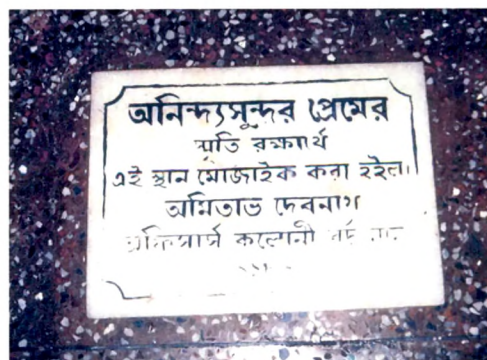 অনিন্দ্যসুন্দর প্রেমের
স্মৃতি রক্ষার্থে
এই স্থান মোজাইক করা হইল।
অমিতাভ দেবনাথ
অফিসার্স কলোনী